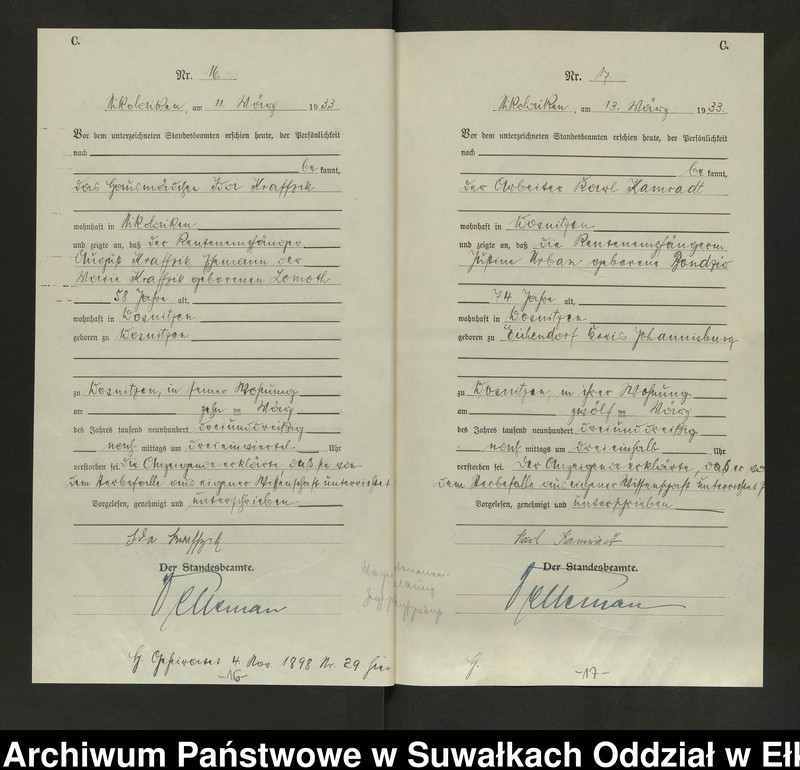 C.
Nr. 16.
Nikolaiken, am 11. März 1933.
Vor dem unterzeichneten Standesbeamten erschien heute, der Persönlichkeit
nach
bekannt,
das Hausmädchen Ida Kraffzik
wohnhaft in Nikolaiken
und zeigte an, daß der Rentenempfänger
August Kraffzik Ehemann der
Marie Kraffzik geborenen Lomoth
58 Jahre alt,
wohnhaft in Kosnitzen
geboren zu Kosnitzen
zu Kosnitzen, in seiner Wohnung
am zehn ten März
des Jahres tausend neunhundert dreiunddreißig
nachmittags um dreieinviertel Uhr
verstorben sei. Die Anzeigende erklärte, daß sie von
dem Sterbefalle aus eigener Wissenschaft unterrichtet
Vorgelesen, genehmigt und unterschrieben
Ida Kraffzik
Der Standesbeamte.
4. Nov. 1898 Nr. 29 hier
-16-
C.
Nr. 17.
Nikolaiken, am 13. März 1933.
Vor dem unterzeichneten Standesbeamten erschien heute, der Persönlichkeit
nach
bekannt,
der Arbeiter Karl Kamradt
wohnhaft in Kosnitzen
und zeigte an, daß die Rentenempfängerin
Justine Urban geborene Bondzio
74 Jahre alt,
wohnhaft in Kosnitzen
geboren zu Eichendorf Kreis Johannisburg
zu Kosnitzen, in ihrer Wohnung
am zwölf ten März
des Jahres tausend neunhundert dreiunddreißig
nachmittags um dreieinhalb Uhr
verstorben sei. Der Anzeigende erklärte, daß er von
dem Sterbefalle aus eigener Wissenschaft unterrichtet
Vorgelesen, genehmigt und unterschrieben
Karl Kamradt
Der Standesbeamte.
G.
-17-
Archiwum Państwowe w Suwałkach Oddział w Ełk